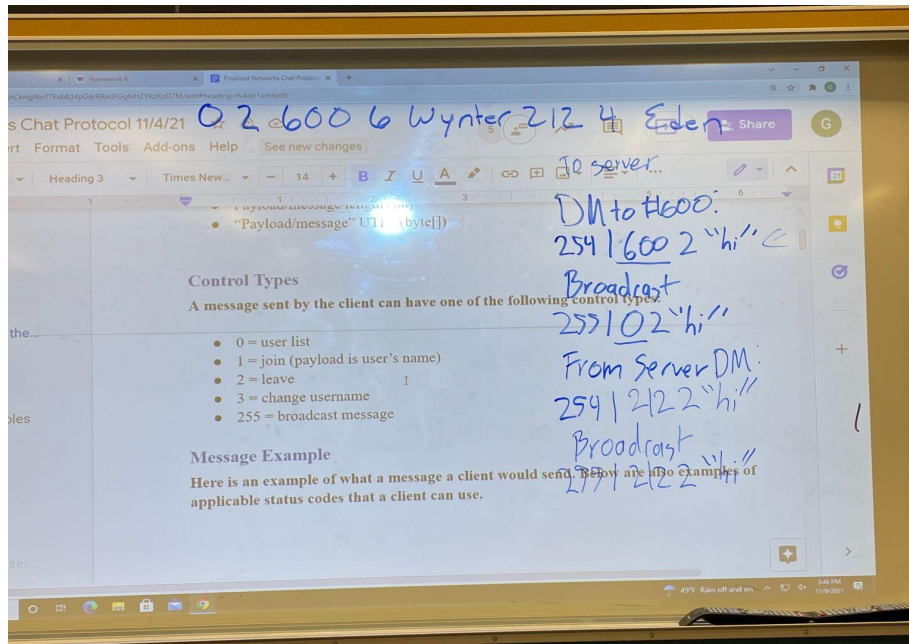 W Homework 6
Finalized Networks Chat Protoco
s Chat Protocol 11/4/21
0 2 600 6 Wynter 212 4 Eden
5
Share
G
rt Format Tools Add-ons Help See new changes
Heading 3 Times New... - 14 + B I U A
1 1 2 3 5 6
31
To server
DM to #600:
254 | 600 2 "hi"
Broadcast
255 | 0 2 "hi"
From Server DM:
254 | 212 2 "hi"
Broadcast
255 | 212 2 "hi"
"Payload/message" (byte[])
Control Types
A message sent by the client can have one of the following control types:
0 = user list
1 = join (payload is user's name)
2 = leave
3 = change username
255 = broadcast message
Message Example
Here is an example of what a message a client would send. Below are also examples of
applicable status codes that a client can use.
the...
ples
ser...
49°F Rain off and on
3:46 PM
11/9/2021